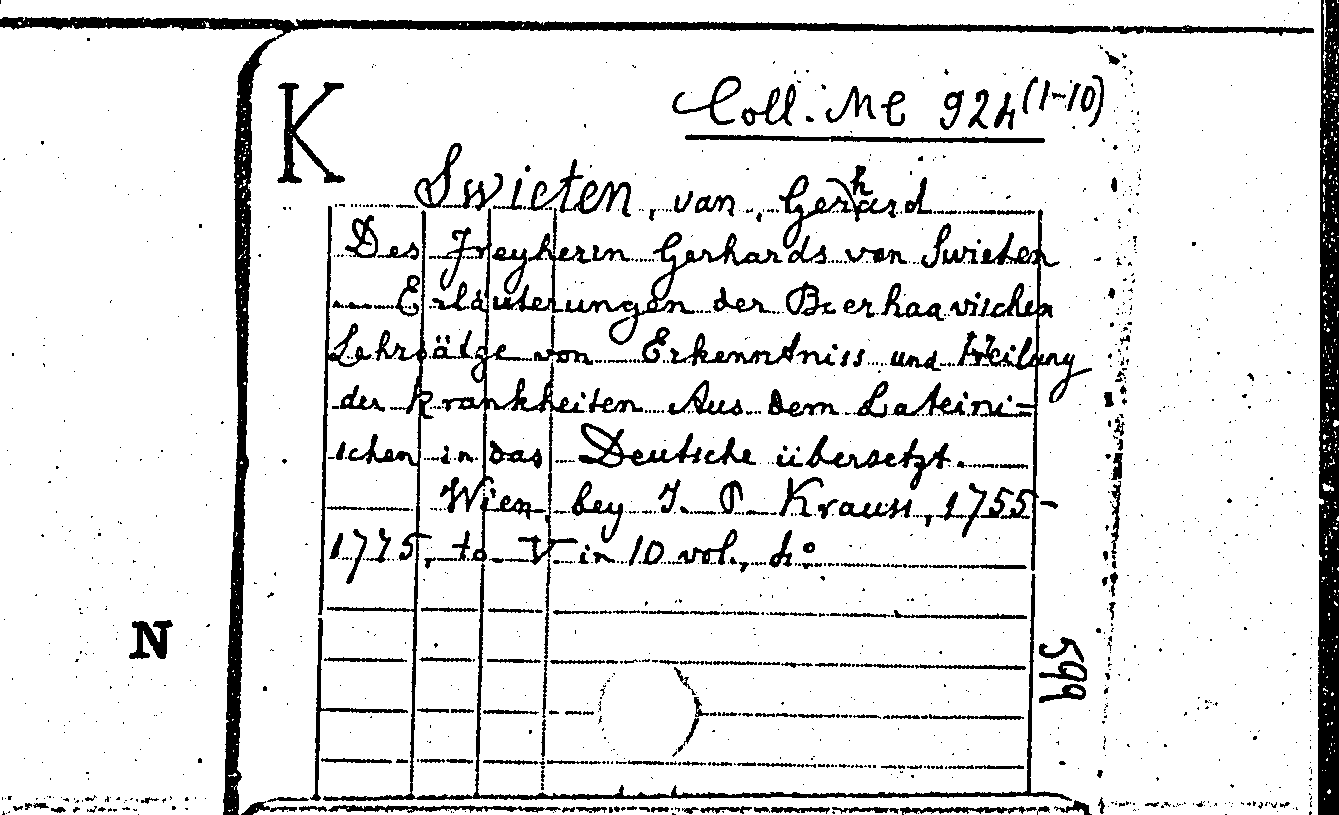 K
Coll. MC 924 (1-10)
Swieten, van, Gerhard
Des Freyherrn Gerhards von Swieten
Erläuterungen der Boerhaavischen
Lehrsätze von Erkenntniss und Heilung
der Krankheiten Aus dem Lateini=
schen in das Deutsche übersetzt.
Wien, bey J. P. Krauss, 1755-
1775, to. V in 10 vol., 4°
N
599